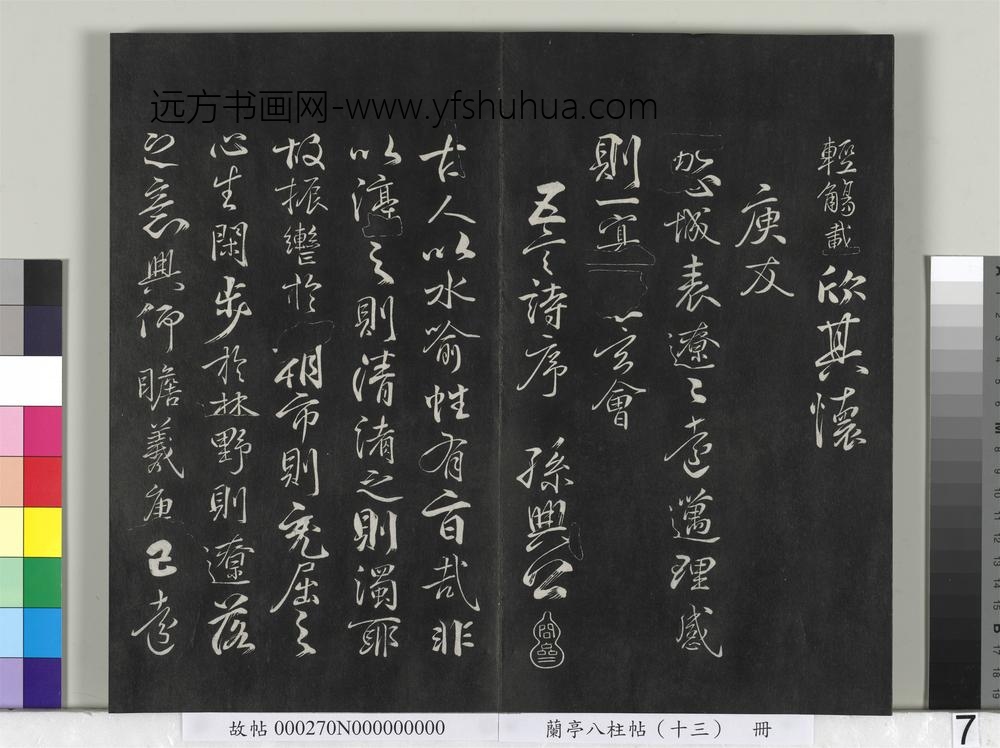 远方书画网-www.yfshuhua.com
輕觴載欣其懷
庚友
心域表遼々遠邁理感
則一冥玄會
五言詩序 孫興公
古人以水喻性有旨哉非
以渟之則清淆之則濁耶
故振轡於朝市則充屈之
心生閑步於林野則遼落
之意興仰瞻羲唐已遠
故帖 000270N000000000
蘭亭八柱帖（十三） 冊
7